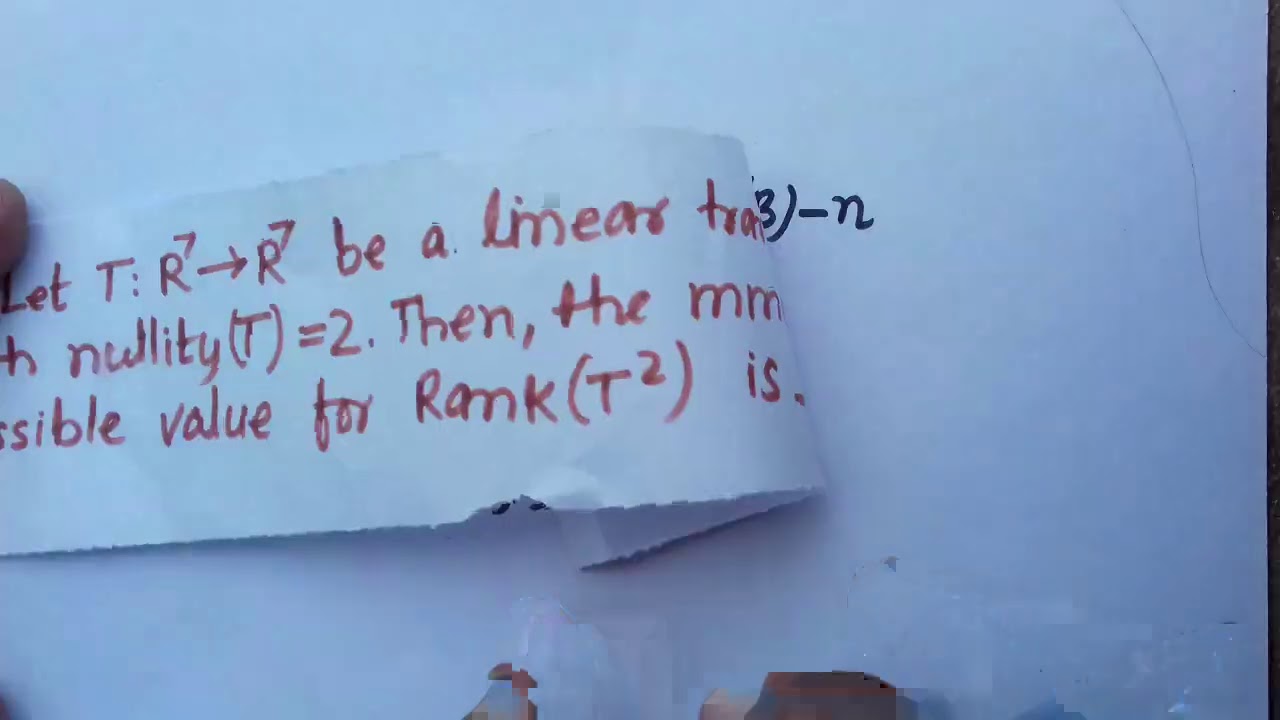 Let T: R⁷→R⁷ be a linear tra 3)-n
h nullity(T)=2. Then, the mm
ssible value for Rank(T²) is.